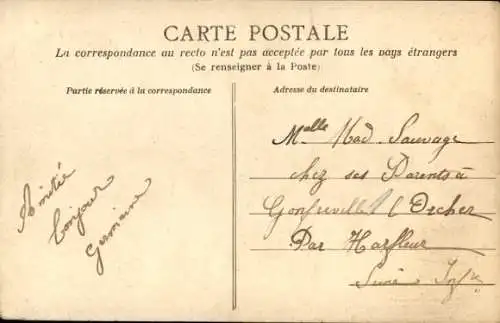 CARTE POSTALE
La correspondance au recto n'est pas acceptée par tous les pays étrangers
(Se renseigner à la Poste)
Partie réservée à la correspondance
Adresse du destinataire
Amitié
bonjour
Germaine
Melle Mad. Sauvage
chez ses Parents à
Gonfreville l'Orcher
Par Harfleur
Seine Infre